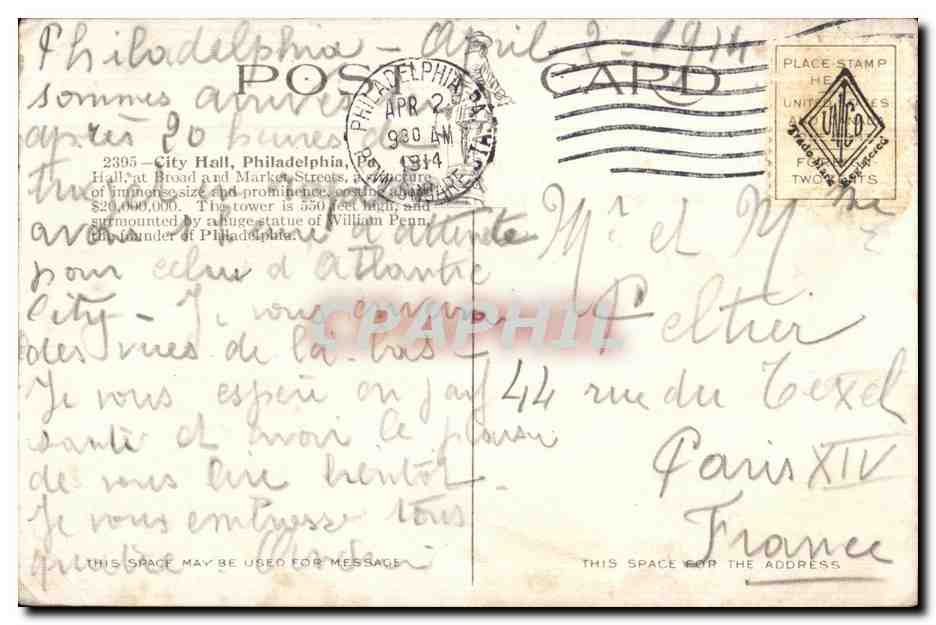 Philadelphia - April 2 - 1914
POST CARD
sommes arrivés
après 20 heures de
2395—City Hall, Philadelphia, Pa.
Hall, at Broad and Market Streets, a structure
of immense size and prominence, costing
$20,000,000. The tower is 550 feet high, and
surmounted by a huge statue of William Penn,
the founder of Philadelphia.
avons d'attente
pour celui d'Atlantic
City - Je vous enverrai
des vues de là-bas
Je vous espère en
santé et avoir le plaisir
de vous lire bientôt
Je vous embrasse tous
THIS SPACE MAY BE USED FOR MESSAGE
PHILADELPHIA, PA.
APR 2
9 30 AM
1914
PLACE STAMP
HERE
UNITED STATES
UNCO
Trade Mark Registered
TWO CENTS
Mr et Mme
Peltier
44 rue du Texel
Paris XIV
France
THIS SPACE FOR THE ADDRESS
CPAPHIL